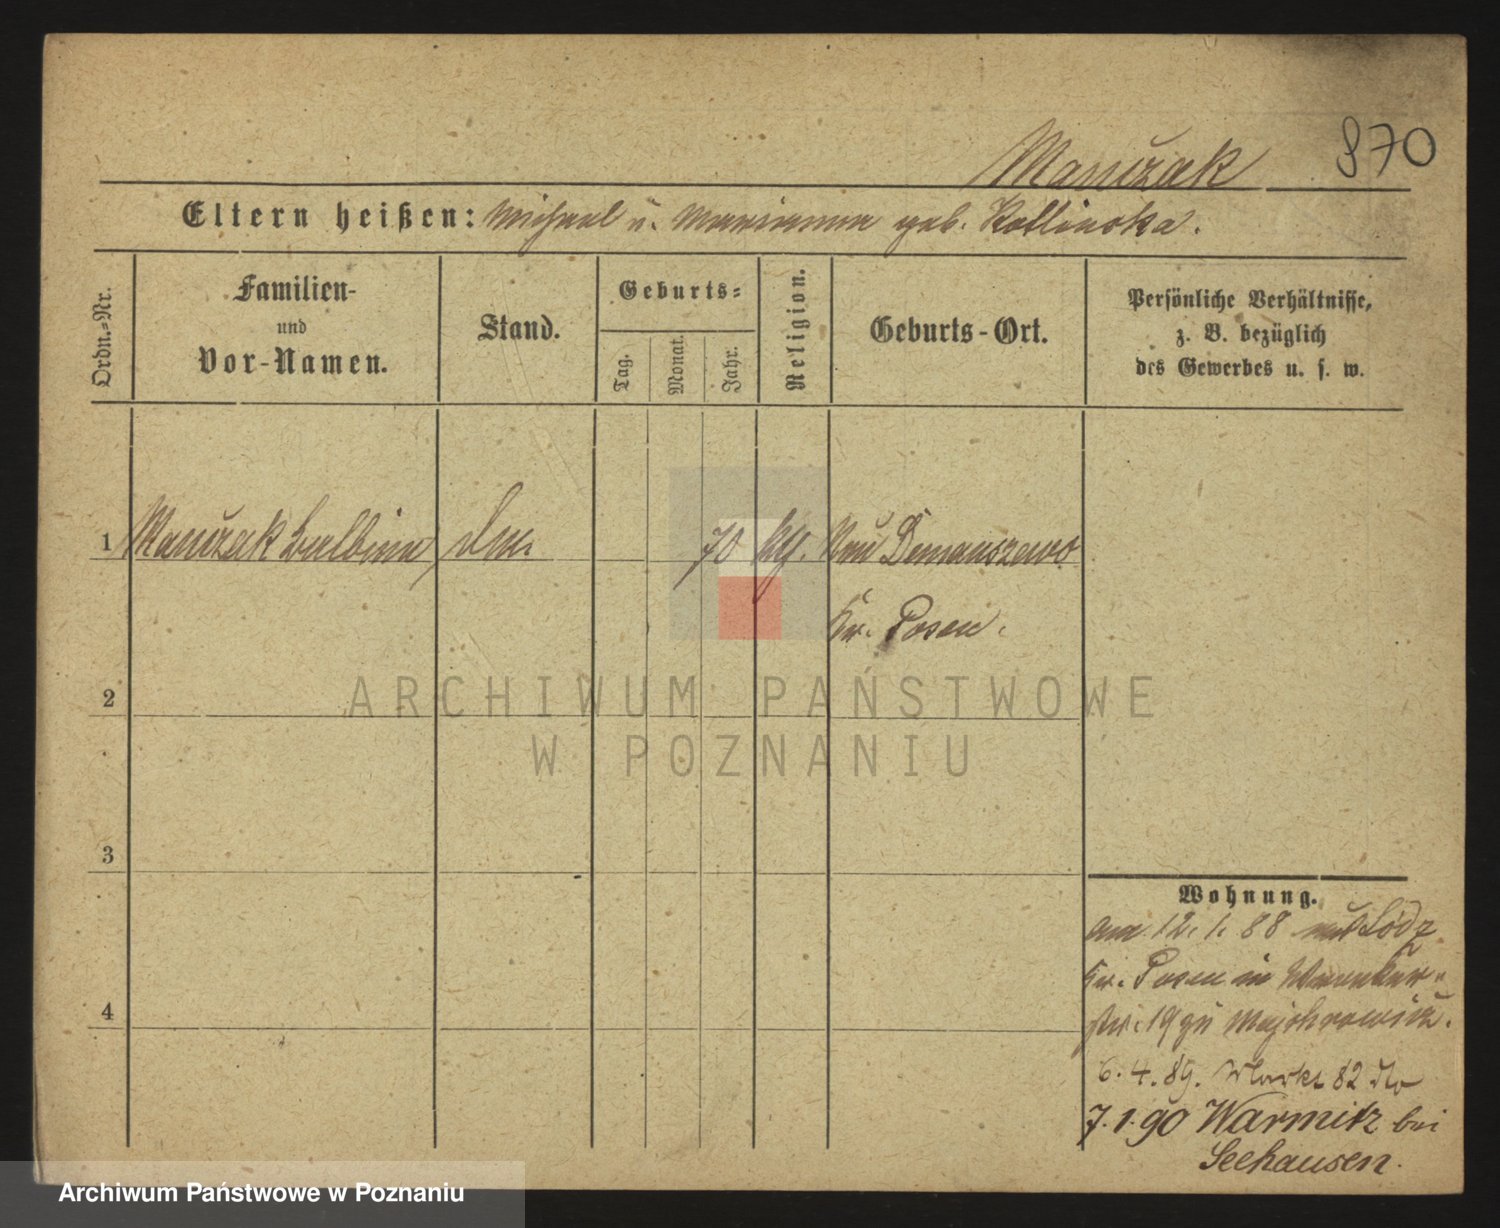 870
Mańczak
Eltern heißen: Michael u. Marianna geb. Kotlinska.
Ordn.-Nr.
Familien-
und
Vor-Namen.
Stand.
Geburts-
Tag.
Monat.
Jahr.
Religion.
Geburts-Ort.
Persönliche Verhältnisse,
z. B. bezüglich
des Gewerbes u. s. w.
1 Mańczak Balbina 70 kth. Neu Demanszewo
Kr. Posen.
2
3
4
Wohnung.
am 12. 1. 88 aus Lódz
Kr. Posen in
19 zu
6. 4. 89. Markt 82
7. 1. 90 Warmitz bei
Seehausen.
ARCHIWUM PAŃSTWOWE
W POZNANIU
Archiwum Państwowe w Poznaniu